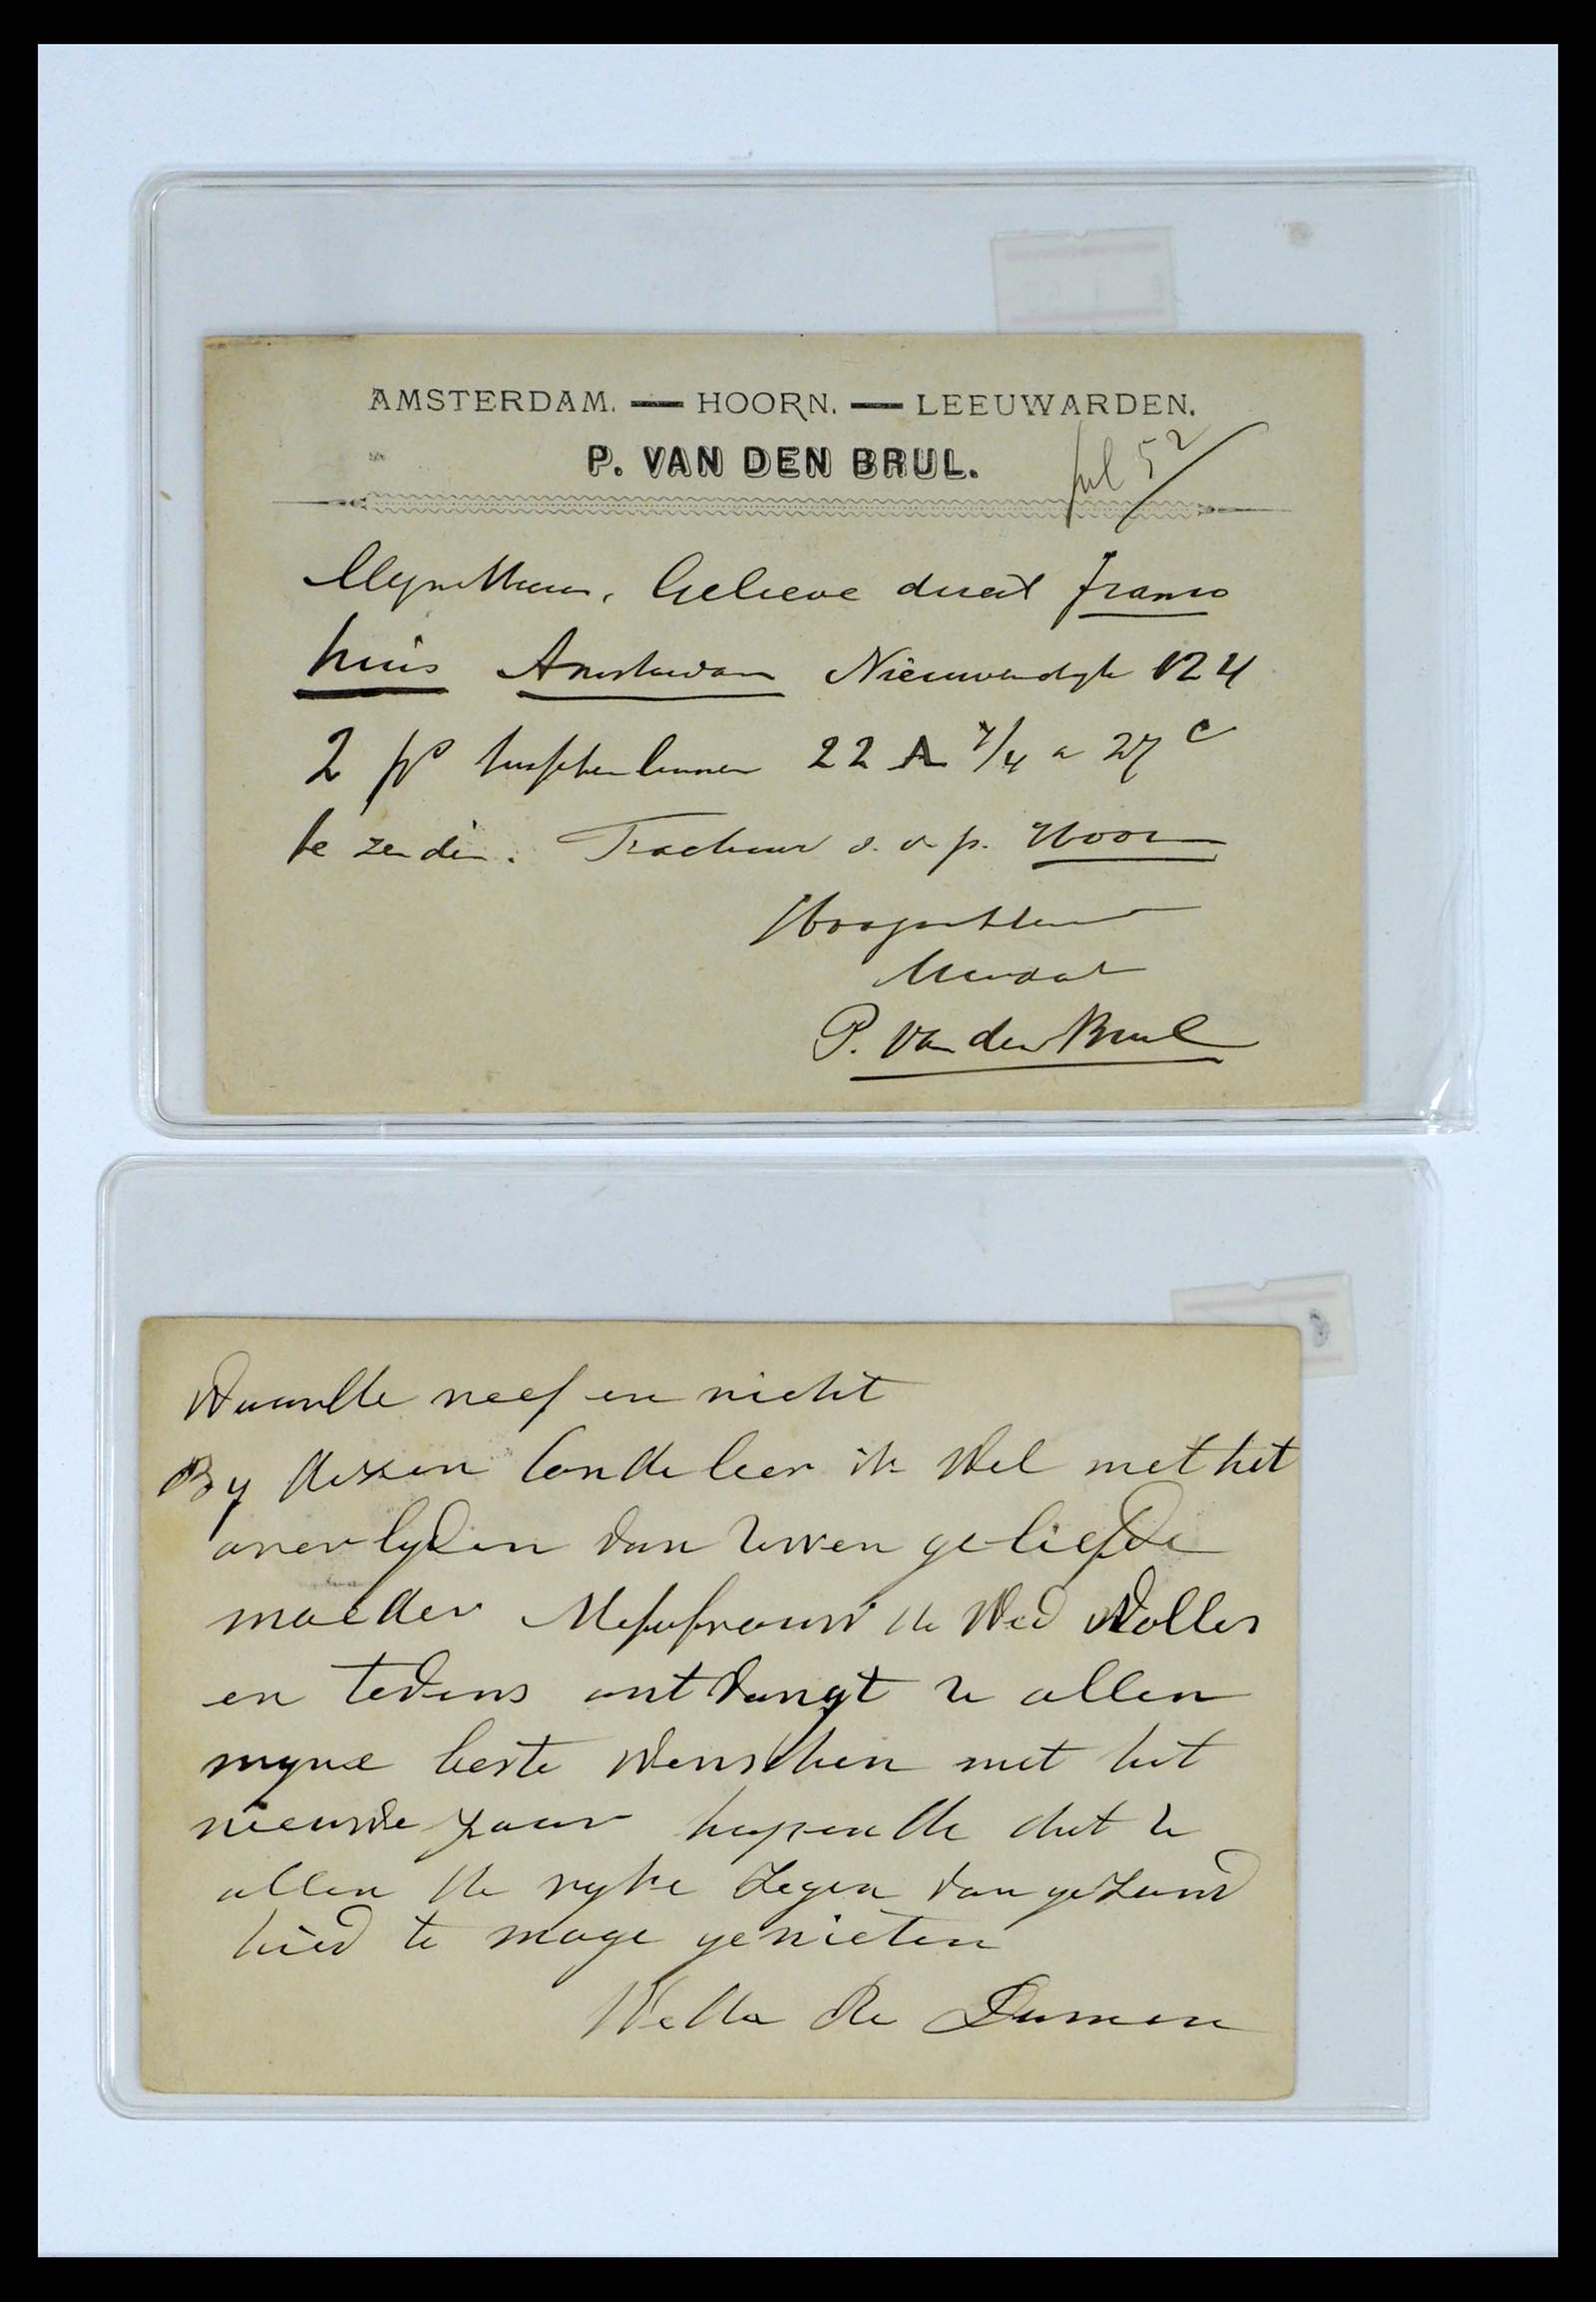 AMSTERDAM. — HOORN. — LEEUWARDEN.
P. VAN DEN BRUL.
52
Mynheer, Gelieve direct franco
huis Amsterdam Nieuwendyk 124
2 ps 22 A 7/4 a 27 c
te zenden. Factuur s.v.p. Hoorn
Hoogachtend
P. van den Brul
Waarde neef en nicht
By dezen Condeleer ik Wel met het
overlyden van Uwen geliefde
moeder Mejufvrouw de Wed
en tevens ontvangt U allen
myne beste Wenschen met het
nieuwe Jaar hopende dat U
allen de ryke Zegen van gezond
hied te moge genieten
de